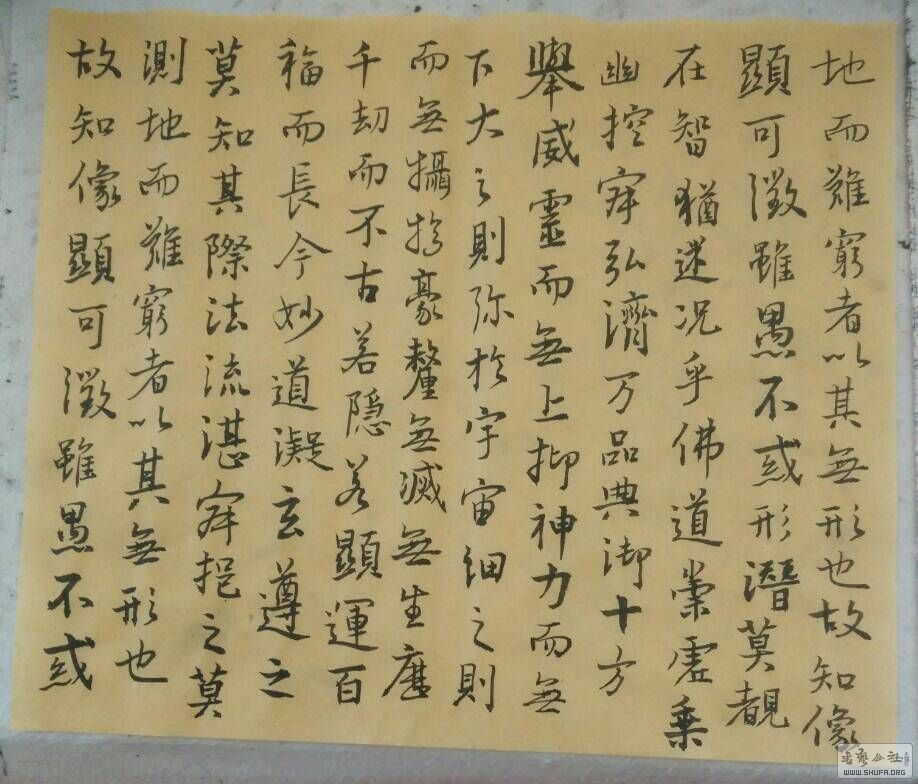 地而難窮者以其無形也故知像
顯可徵雖愚不惑形潛莫覩
在智猶迷况乎佛道崇虛乗
幽控寂弘濟万品典御十方
舉威靈而無上抑神力而無
下大之則弥於宇宙細之則
而無攝於豪釐無滅無生歷
千劫而不古若隐若顯運百
福而長今妙道凝玄遵之
莫知其際法流湛寂挹之莫
測地而難窮者以其無形也
故知像顯可徵雖愚不惑
書藝公社
WWW.SHUFA.ORG